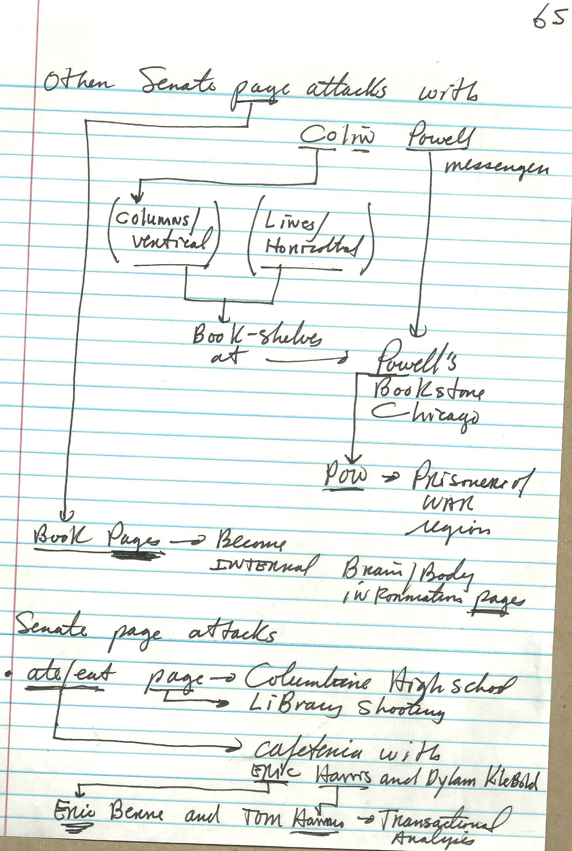 65
Other Senate page attacks with
Colin Powell
messenger
(Columns/ (Lines/
vertical) Horizontal)
Book-shelves
at → Powell's
Bookstore
Chicago
POW → Prisoner of
WAR
region
Book Pages → Become
INTERNAL Brain/Body
information pages
Senate page attacks
• ate/eat page → Columbine High school
→ LiBrary shooting
→ cafeteria with
Eric Harris and Dylan KleBold
Eric Berne and Tom Harris → Transactional
Analysis